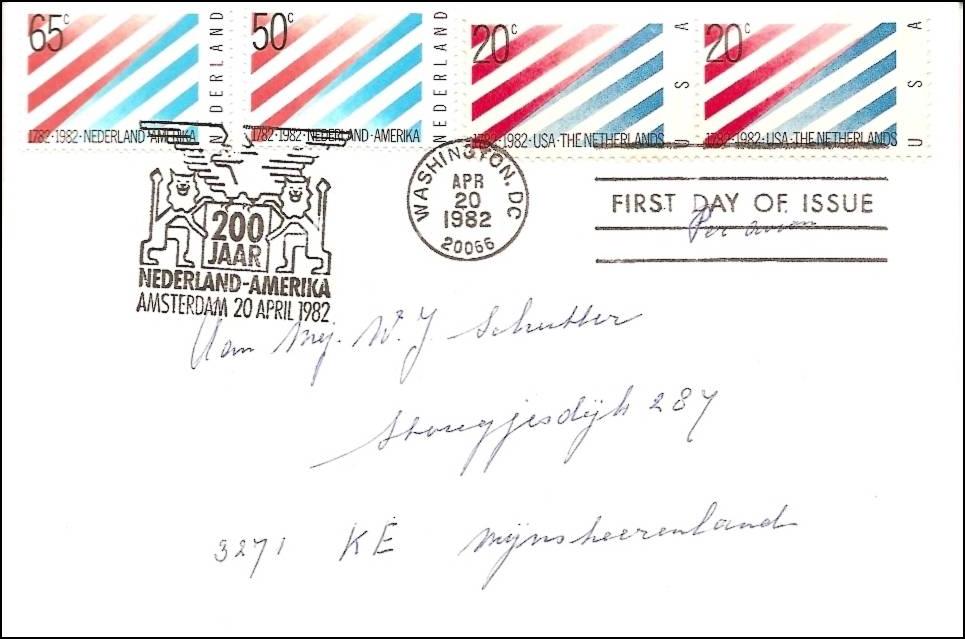 65c 50c 20c 20c
NEDERLAND NEDERLAND USA USA
1782·1982·NEDERLAND-AMERIKA 1782·1982·NEDERLAND-AMERIKA 1782·1982·USA·THE NETHERLANDS 1782·1982·USA·THE NETHERLANDS
WASHINGTON, DC
APR
20
1982
20066
FIRST DAY OF ISSUE
Per avion
200
JAAR
NEDERLAND-AMERIKA
AMSTERDAM 20 APRIL 1982
Aan Mej. W. J Schutter
287
3271 KE Mijnsheerenland